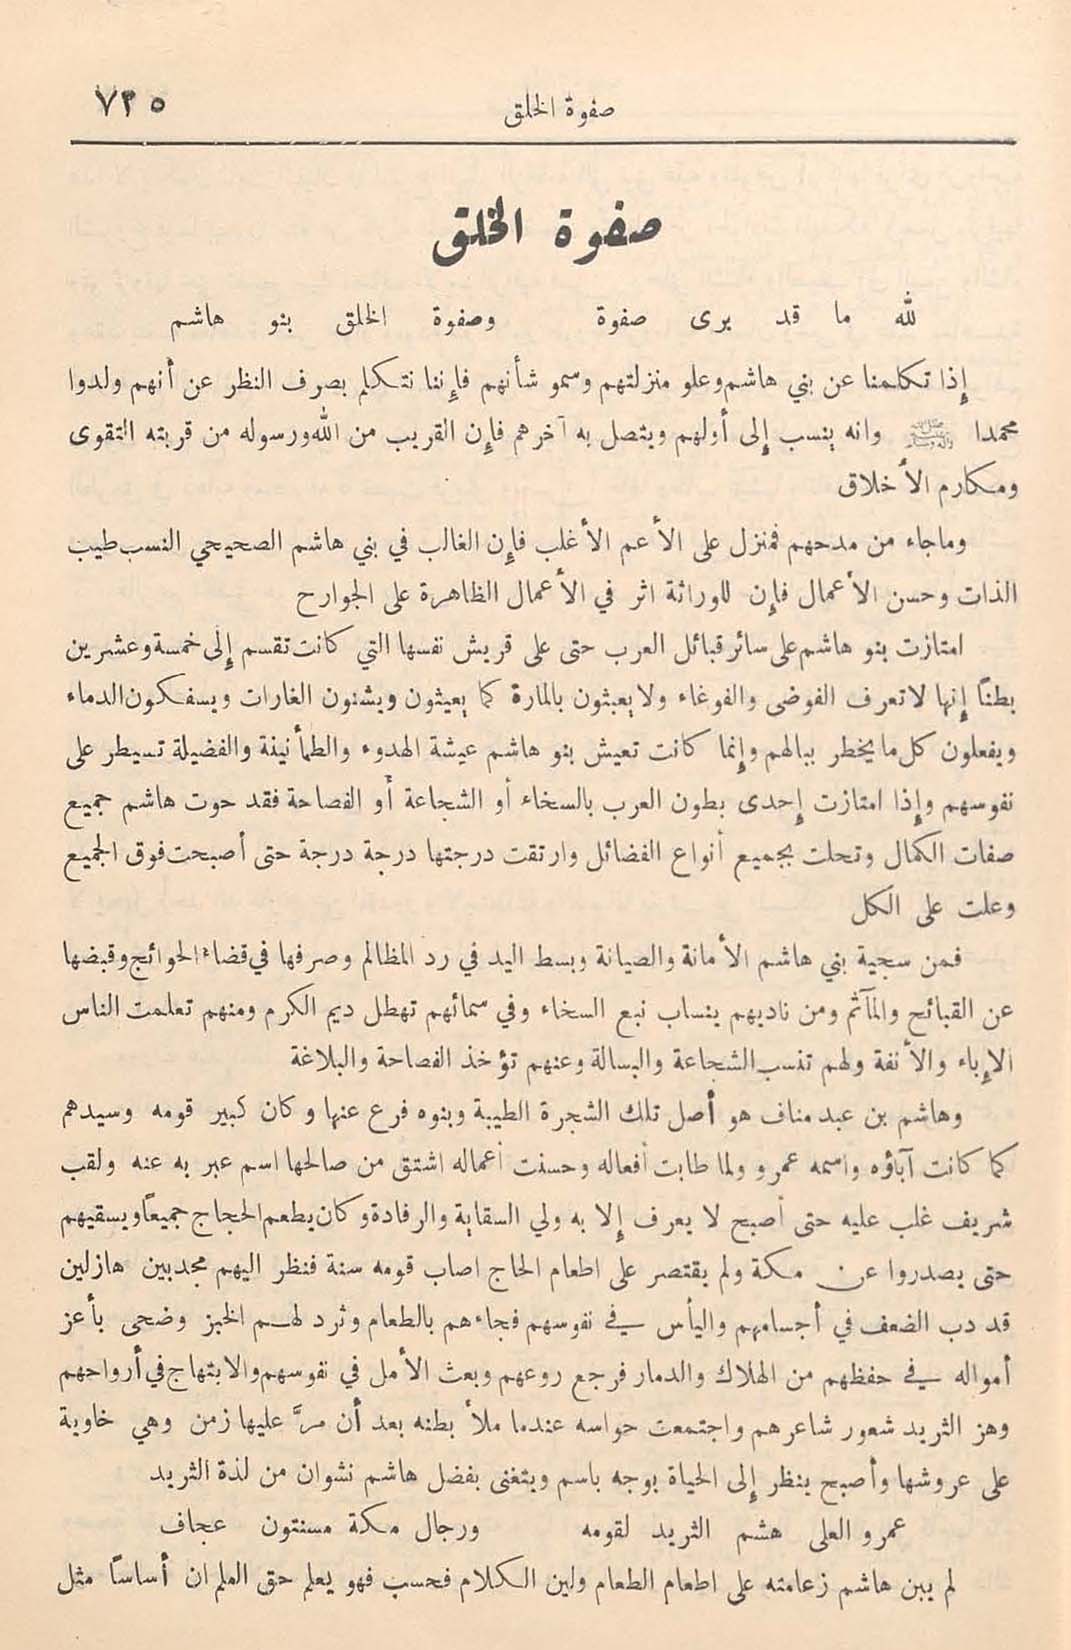 صفوة الخلق ٧٣٥
صفوة الخلق
لله ما قد يرى صفوة وصفوة الخلق بنو هاشم
إذا تكلمنا عن بني هاشم وعلو منزلتهم وسمو شأنهم فإننا نتكلم بصرف النظر عن أنهم ولدوا
محمدا ﷺ وانه ينسب إلى أولهم ويتصل به آخرهم فإن القريب من الله ورسوله من قربته التقوى
ومكارم الأخلاق
وماجاء من مدحهم فمنزل على الأعم الأغلب فإن الغالب في بني هاشم الصحيحي النسب طيب
الذات وحسن الأعمال فإن للوراثة اثر في الأعمال الظاهرة على الجوارح
امتازت بنو هاشم على سائر قبائل العرب حتى على قريش نفسها التي كانت تقسم إلى خمسة وعشرين
بطناً إنها لا تعرف الفوضى والغوغاء ولا يعبثون بالمارة كما يعيثون ويشنون الغارات ويسفكون الدماء
ويفعلون كل ما يخطر ببالهم وإنما كانت تعيش بنو هاشم عيشة الهدوء والطمأنينة والفضيلة تسيطر على
نفوسهم وإذا امتازت إحدى بطون العرب بالسخاء أو الشجاعة أو الفصاحة فقد حوت هاشم جميع
صفات الكمال وتحلت بجميع أنواع الفضائل وارتقت درجتها درجة درجة حتى أصبحت فوق الجميع
وعلت على الكل
فمن سجية بني هاشم الأمانة والصيانة وبسط اليد في رد المظالم وصرفها في قضاء الحوائج وقبضها
عن القبائح والمآثم ومن ناديهم ينساب نبع السخاء وفي سمائهم تهطل ديم الكرم ومنهم تعلمت الناس
الإباء والأنفة ولهم تنسب الشجاعة والبسالة وعنهم تؤخذ الفصاحة والبلاغة
وهاشم بن عبد مناف هو أصل تلك الشجرة الطيبة وبنوه فرع عنها وكان كبير قومه وسيدهم
كما كانت آباؤه واسمه عمرو ولما طابت أفعاله وحسنت أعماله اشتق من صالحها اسم عبر به عنه ولقب
شريف غلب عليه حتى أصبح لا يعرف إلا به ولي السقاية والرفادة وكان يطعم الحجاج جميعاً ويسقيهم
حتى يصدروا عن مكة ولم يقتصر على اطعام الحاج اصاب قومه سنة فنظر اليهم مجدبين هازلين
قد دب الضعف في أجسامهم واليأس في نفوسهم فجاءهم بالطعام وثرد لهم الخبز وضحى بأعز
أمواله في حفظهم من الهلاك والدمار فرجع روعهم وبعث الأمل في نفوسهم والابتهاج في أرواحهم
وهز الثريد شعور شاعرهم واجتمعت حواسه عندما ملأ بطنه بعد أن مرَّ عليها زمن وهي خاوية
على عروشها وأصبح ينظر إلى الحياة بوجه باسم ويتغنى بفضل هاشم نشوان من لذة الثريد
عمرو العلى هشم الثريد لقومه ورجال مكة مسنتون عجاف
لم يبن هاشم زعامته على اطعام الطعام ولين الكلام فحسب فهو يعلم حق العلم ان أساساً مثل